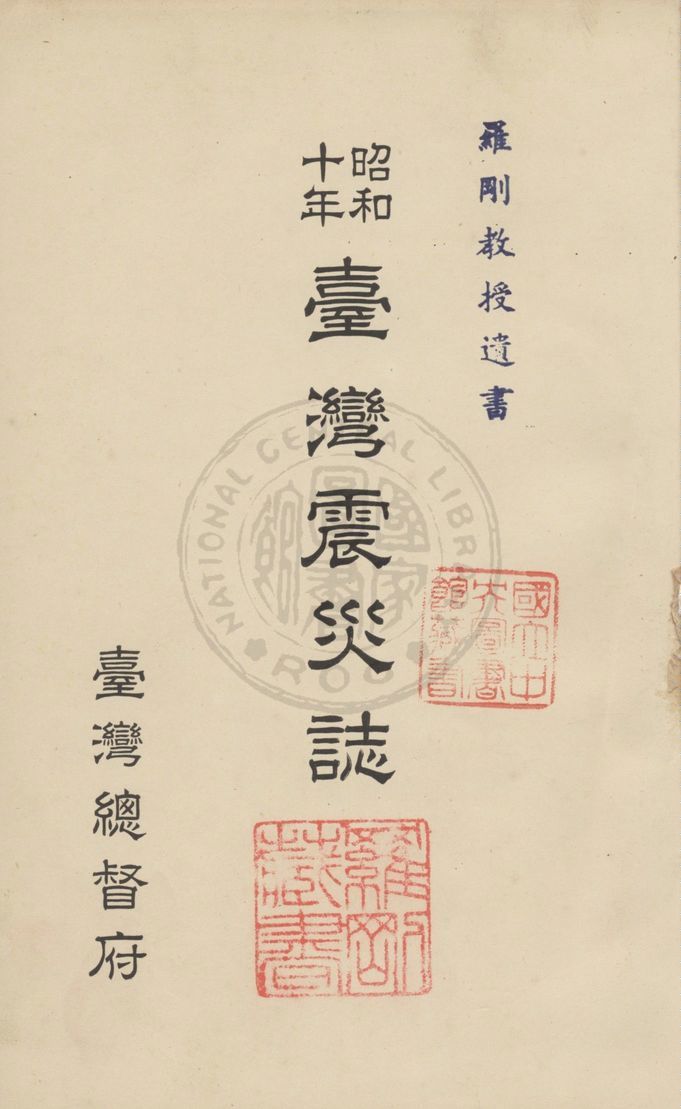 羅剛教授遺書
昭和
十年
臺灣震災誌
臺灣總督府
國立中
央圖書
館藏書
羅剛
藏書
NATIONAL CENTRAL LIBRARY
ROC
國家
圖書
館